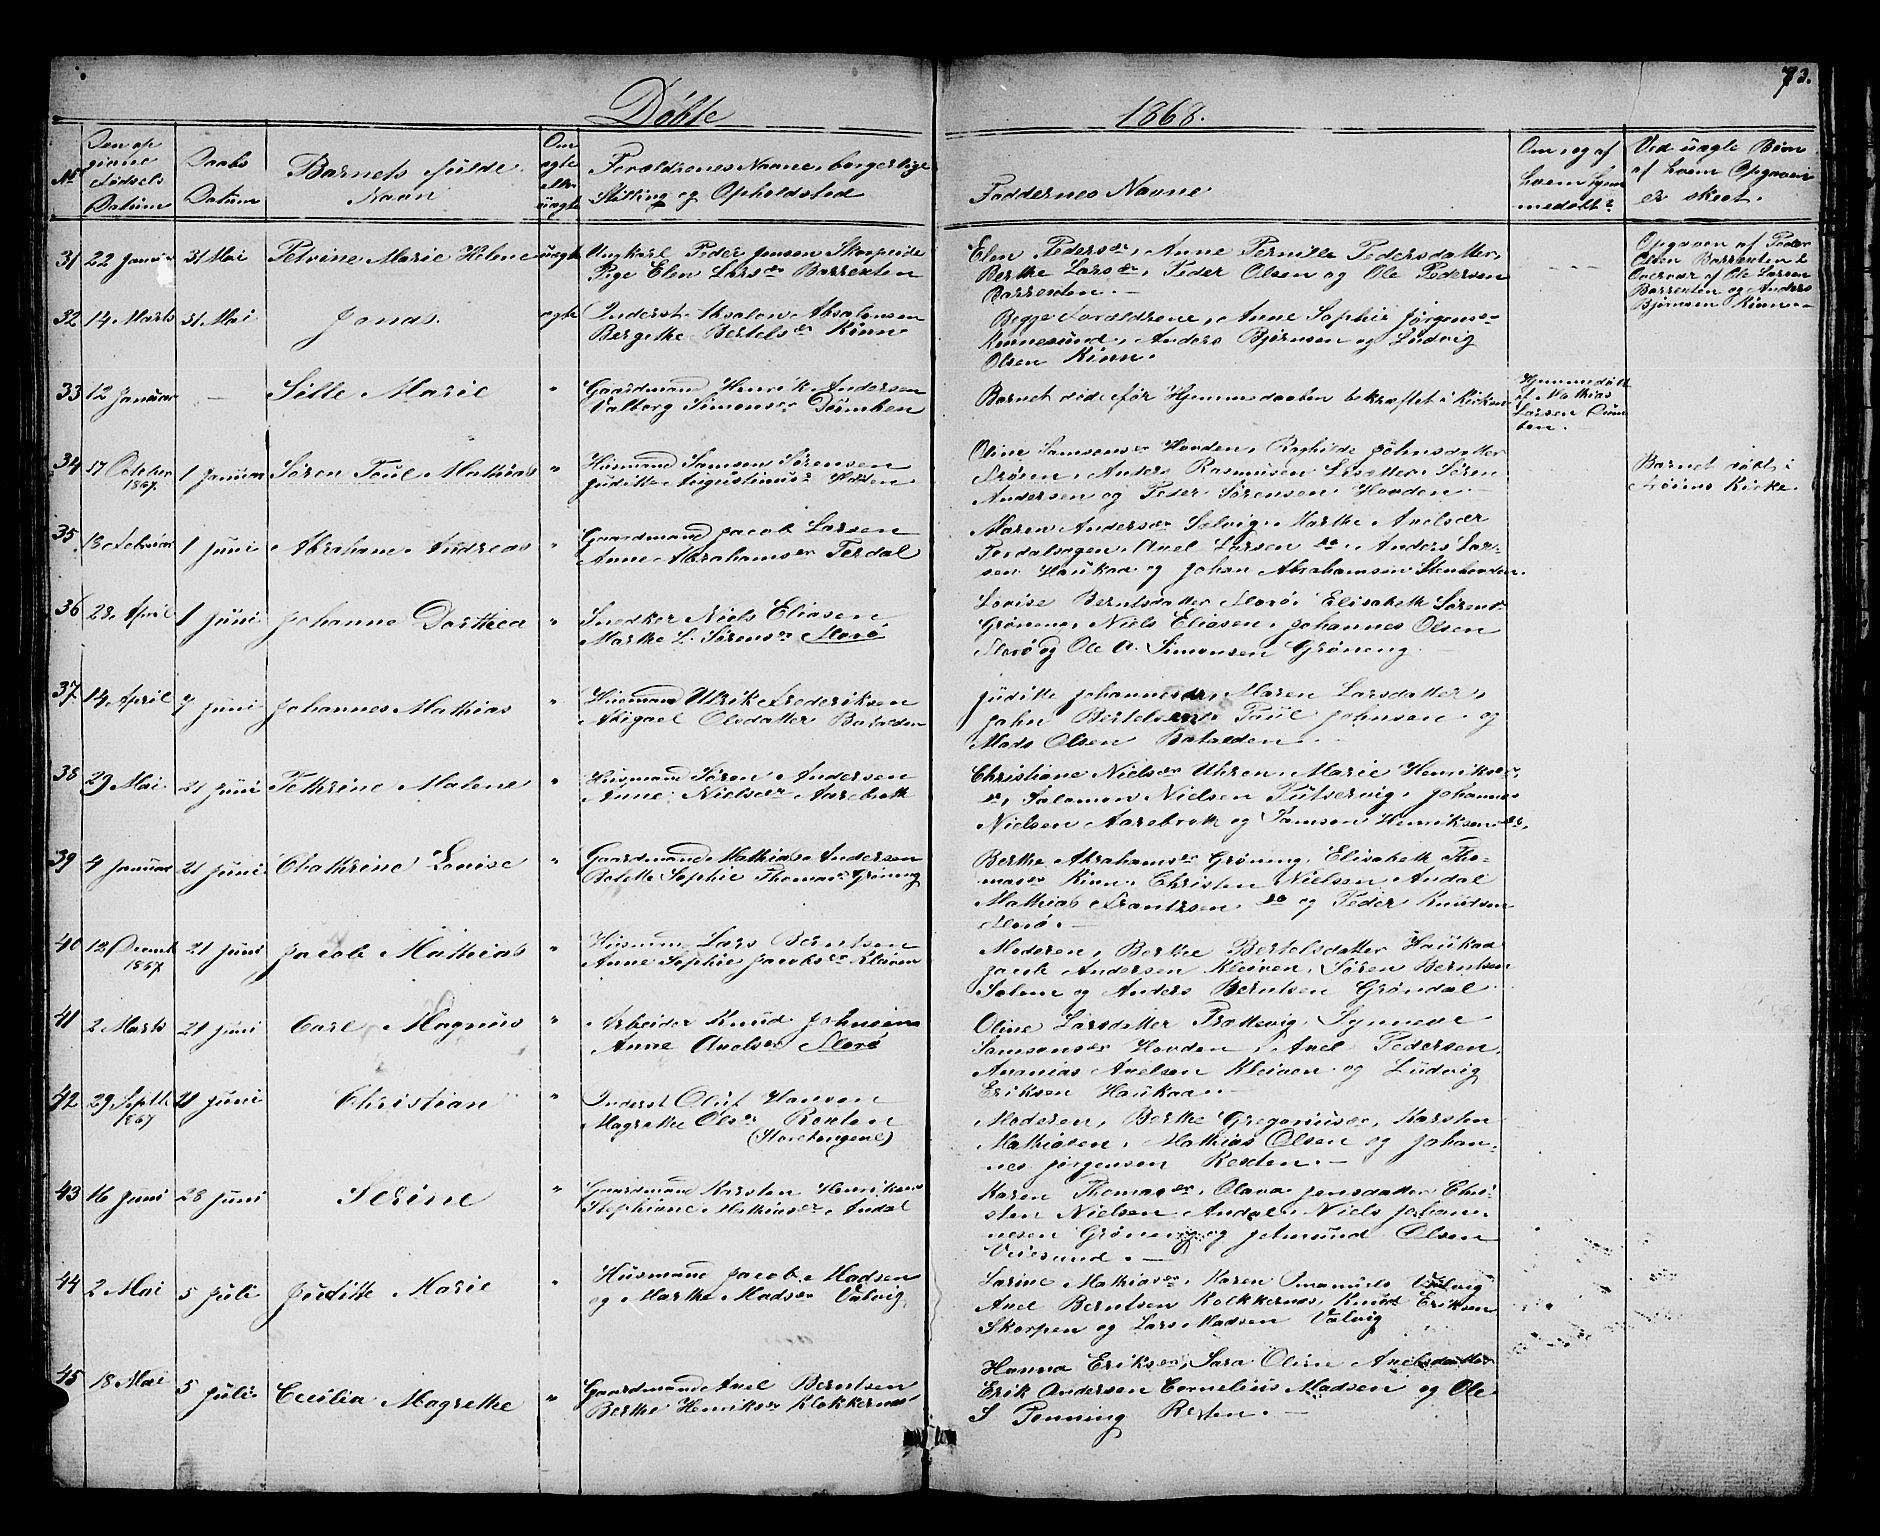 73.
Døbte
1868.
No
Den op
givne
Fødsels
Datum
Daabs
Datum
Barnets fulde
Navn
Om
ægte
eller
uægte
Forældrenes Navne, borgerlige
Stilling og Opholdsted
Faddernes Navne
Om og af
hvem hjem
medøbt?
Ved uægte Børn
af hvem Opgaven
er skeet.
31 22 Januar 31 Mai Petrine Marie Helene uægte
Ungkarl Peder Jensen
Pige Elen Larsdr Barrexten
Elen Pedersdr, Anne Pernille Pedersdatter,
Berthe Larsdr, Peder Olsen og Ole Pedersen
Barrexten. —
Opgaven af Peder
Olsen Barrexten i
Overvær af Ole Larsen
Barrexten og Anders
Bjørnsen Kinn. —
32 14 Marts 31 Mai Jonas. ægte
Inderst Absalon Absalonsen
Bergithe Bertelsdr Kinn
Begge Forældrene, Anne Sophie Jørgensdr
Anders Bjørnsen og Ludvig
Olsen Kinn.
33 12 Januar — Sille Marie "
Gaardmand Henrik Andersen
Valborg Simonsdr
Barnet døde før Hjemmedaaben bekræftet i Kirken
Hjemmedøbt
af Mathias
Larsen
34 17 October 1867. 1 Januar Søren Poul Mathias "
Husmand Samson Sørensen
Juditte Augustinusdr Hovden
Oline Samsonsdr Hovden, Ragnilde Johnsdatter
Anders Rasmusen Søren
Andersen og Peder Sørensen Hovden —
Barnet døbt i
Kirke.
35 13 Februar 1 Juni Abraham Andreas "
Gaardmand Jacob Larsen
Anne Abrahamsdr Terdal
Maren Andersdr Solvig, Marthe Axelsdr
Axel Larsen do. Anders Lar-
sen Haukaa og Johan Abrahamsen Stenhovden.
36 28 April 1 Juni Johanne Dorthea "
Snedker Niels Eliasen,
Marthe L. Sørensdr Florø
Lovise Berntsdatter Florø, Elisabeth Sørensdr
Grønning, Niels Eliasen, Johannes Olsen
Florø og Ole A. Simonsen Grøneng.
37 14 April 7 Juni Johannes Mathias "
Husmand Ulrik Frederiksen
Abigael Olsdatter Batalden
Judithe Johannesdr, Maren Larsdatter,
John Bertelsen, Poul Johnsen og
Mads Olsen Batalden. —
38 29 Mai 21 Juni Pethrine Malene "
Husmand Søren Andersen
Anne Nielsdr Aarebroth
Christiane Nielsdr Uhren, Marie Henriksdr
do, Salomon Nielsen Johannes
Nielsen Aarebroth og Samson Henriksen do.
39 4 Januar 21 Juni Chathrine Lovise "
Gaardmand Mathias Andersen
Bolette Sophie Thomasdr Grøning
Berthe Abrahamsdr Grøning, Elisabeth Tho-
masdr Kinn, Christen Nielsen Andal
Mathias Frantzsen do og Peder Knudsen
Florø. —
40 12 Decemb 1867 21 Juni Jacob Mathias "
Husmand Lars Berntsen
Anne Sophie Jacobsdr Kleiven
Moderen, Berthe Bertelsdatter Haukaa
Jacob Andersen Kleiven, Søren Berntsen
Solem og Anders Berntsen Grøndal
41 2 Marts 21 Juni Carl Magnus "
Arbeider Knud Johnsen
Anne Axelsdr Florø
Oline Larsdatter Synneve
Samsonsdr Hovden, Axel Pedersen,
Ananias Axelsen Kleiven og Ludvig
Eriksen Haukaa —
42 29 Septbr 1867 21 Juni Christian "
Inderst Oluf Hansen
Magrethe Olsdr Rexten
(Storetangene)
Moderen, Berthe Gregoriusdr, Karsten
Mathiasen, Mathias Olsen og Johan-
nes Jørgensen Rexten. —
43 16 Juni 28 Juni Serine "
Gaardmand Karsten Henriksen
Stephiane Mathiasdr Andal
Karen Thomasdr, Olava Jensdatter Chri-
sten Nielsen Andal, Niels Johan-
nesen Grøneng og Jetmund Olsen
Veiesund. —
44 2 Mai 5 Juli Juditte Marie "
Husmand Jacob Madsen
og Marthe Madsdr Valvig
Larine Mathiasdr, Karen Emanuelsdr Valvig
Axel Berntsen Kolkkernæs, Knud Eriksen
Skorpen og Lars Madsen Valvig
45 18 Mai 5 Juli Cecilia Magrethe "
Gaardmand Axel Berntsen
Berthe Henriksdr Klokkernæs
Hanna Eriksdr, Sara Oline Axelsdatter
Erik Andersen Cornelius Madsen og Ole
S Penning Rexten. —